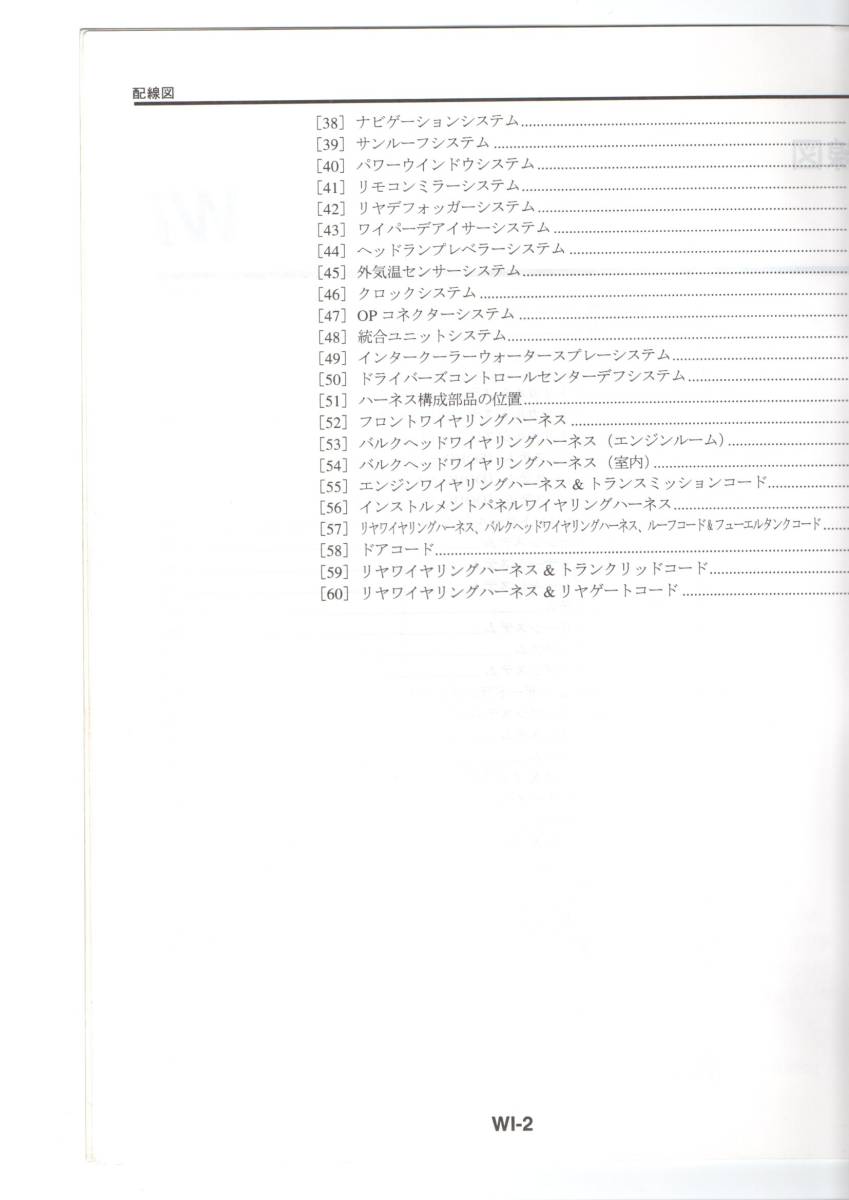 配線図
[38] ナビゲーションシステム
[39] サンルーフシステム
[40] パワーウインドウシステム
[41] リモコンミラーシステム
[42] リヤデフォッガーシステム
[43] ワイパーデアイサーシステム
[44] ヘッドランプレベラーシステム
[45] 外気温センサーシステム
[46] クロックシステム
[47] OP コネクターシステム
[48] 統合ユニットシステム
[49] インタークーラーウォータースプレーシステム
[50] ドライバーズコントロールセンターデフシステム
[51] ハーネス構成部品の位置
[52] フロントワイヤリングハーネス
[53] バルクヘッドワイヤリングハーネス（エンジンルーム）
[54] バルクヘッドワイヤリングハーネス（室内）
[55] エンジンワイヤリングハーネス & トランスミッションコード
[56] インストルメントパネルワイヤリングハーネス
[57] リヤワイヤリングハーネス、バルクヘッドワイヤリングハーネス、ルーフコード&フューエルタンクコード
[58] ドアコード
[59] リヤワイヤリングハーネス & トランクリッドコード
[60] リヤワイヤリングハーネス & リヤゲートコード
WI-2